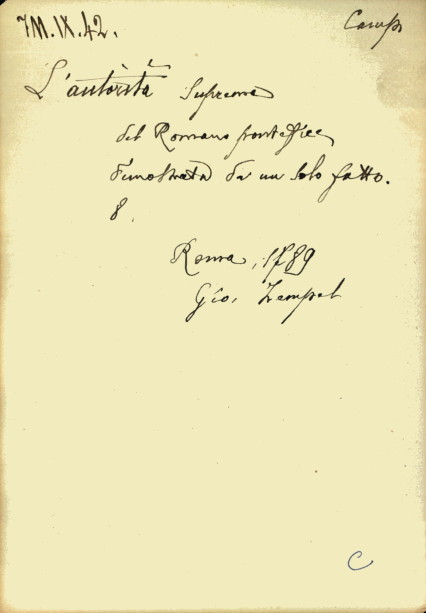 7M.IX.42.
L'autorità Suprema
del Romano pontefice
dimostrata da un solo fatto.
8.
Roma, 1789
Gio. Zempel
C